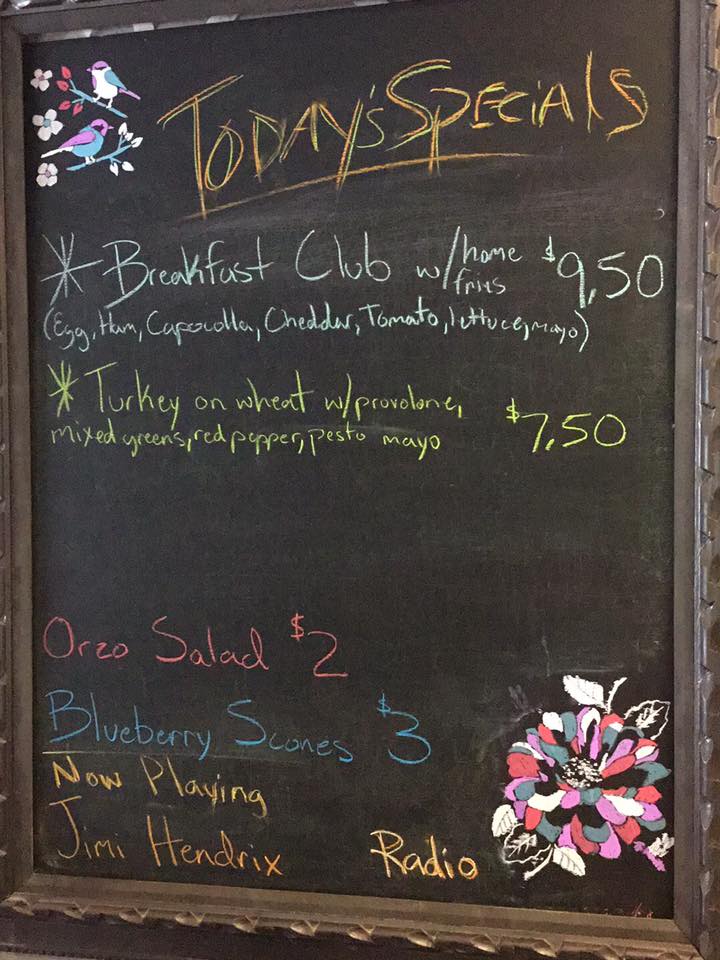 Today's Specials
* Breakfast Club w/home fries $9.50
(Egg, Ham, Capocolla, Cheddar, Tomato, lettuce, mayo)
* Turkey on wheat w/provolone,
mixed greens, red pepper, pesto mayo $7.50
Orzo Salad $2
Blueberry Scones $3
Now Playing
Jimi Hendrix Radio